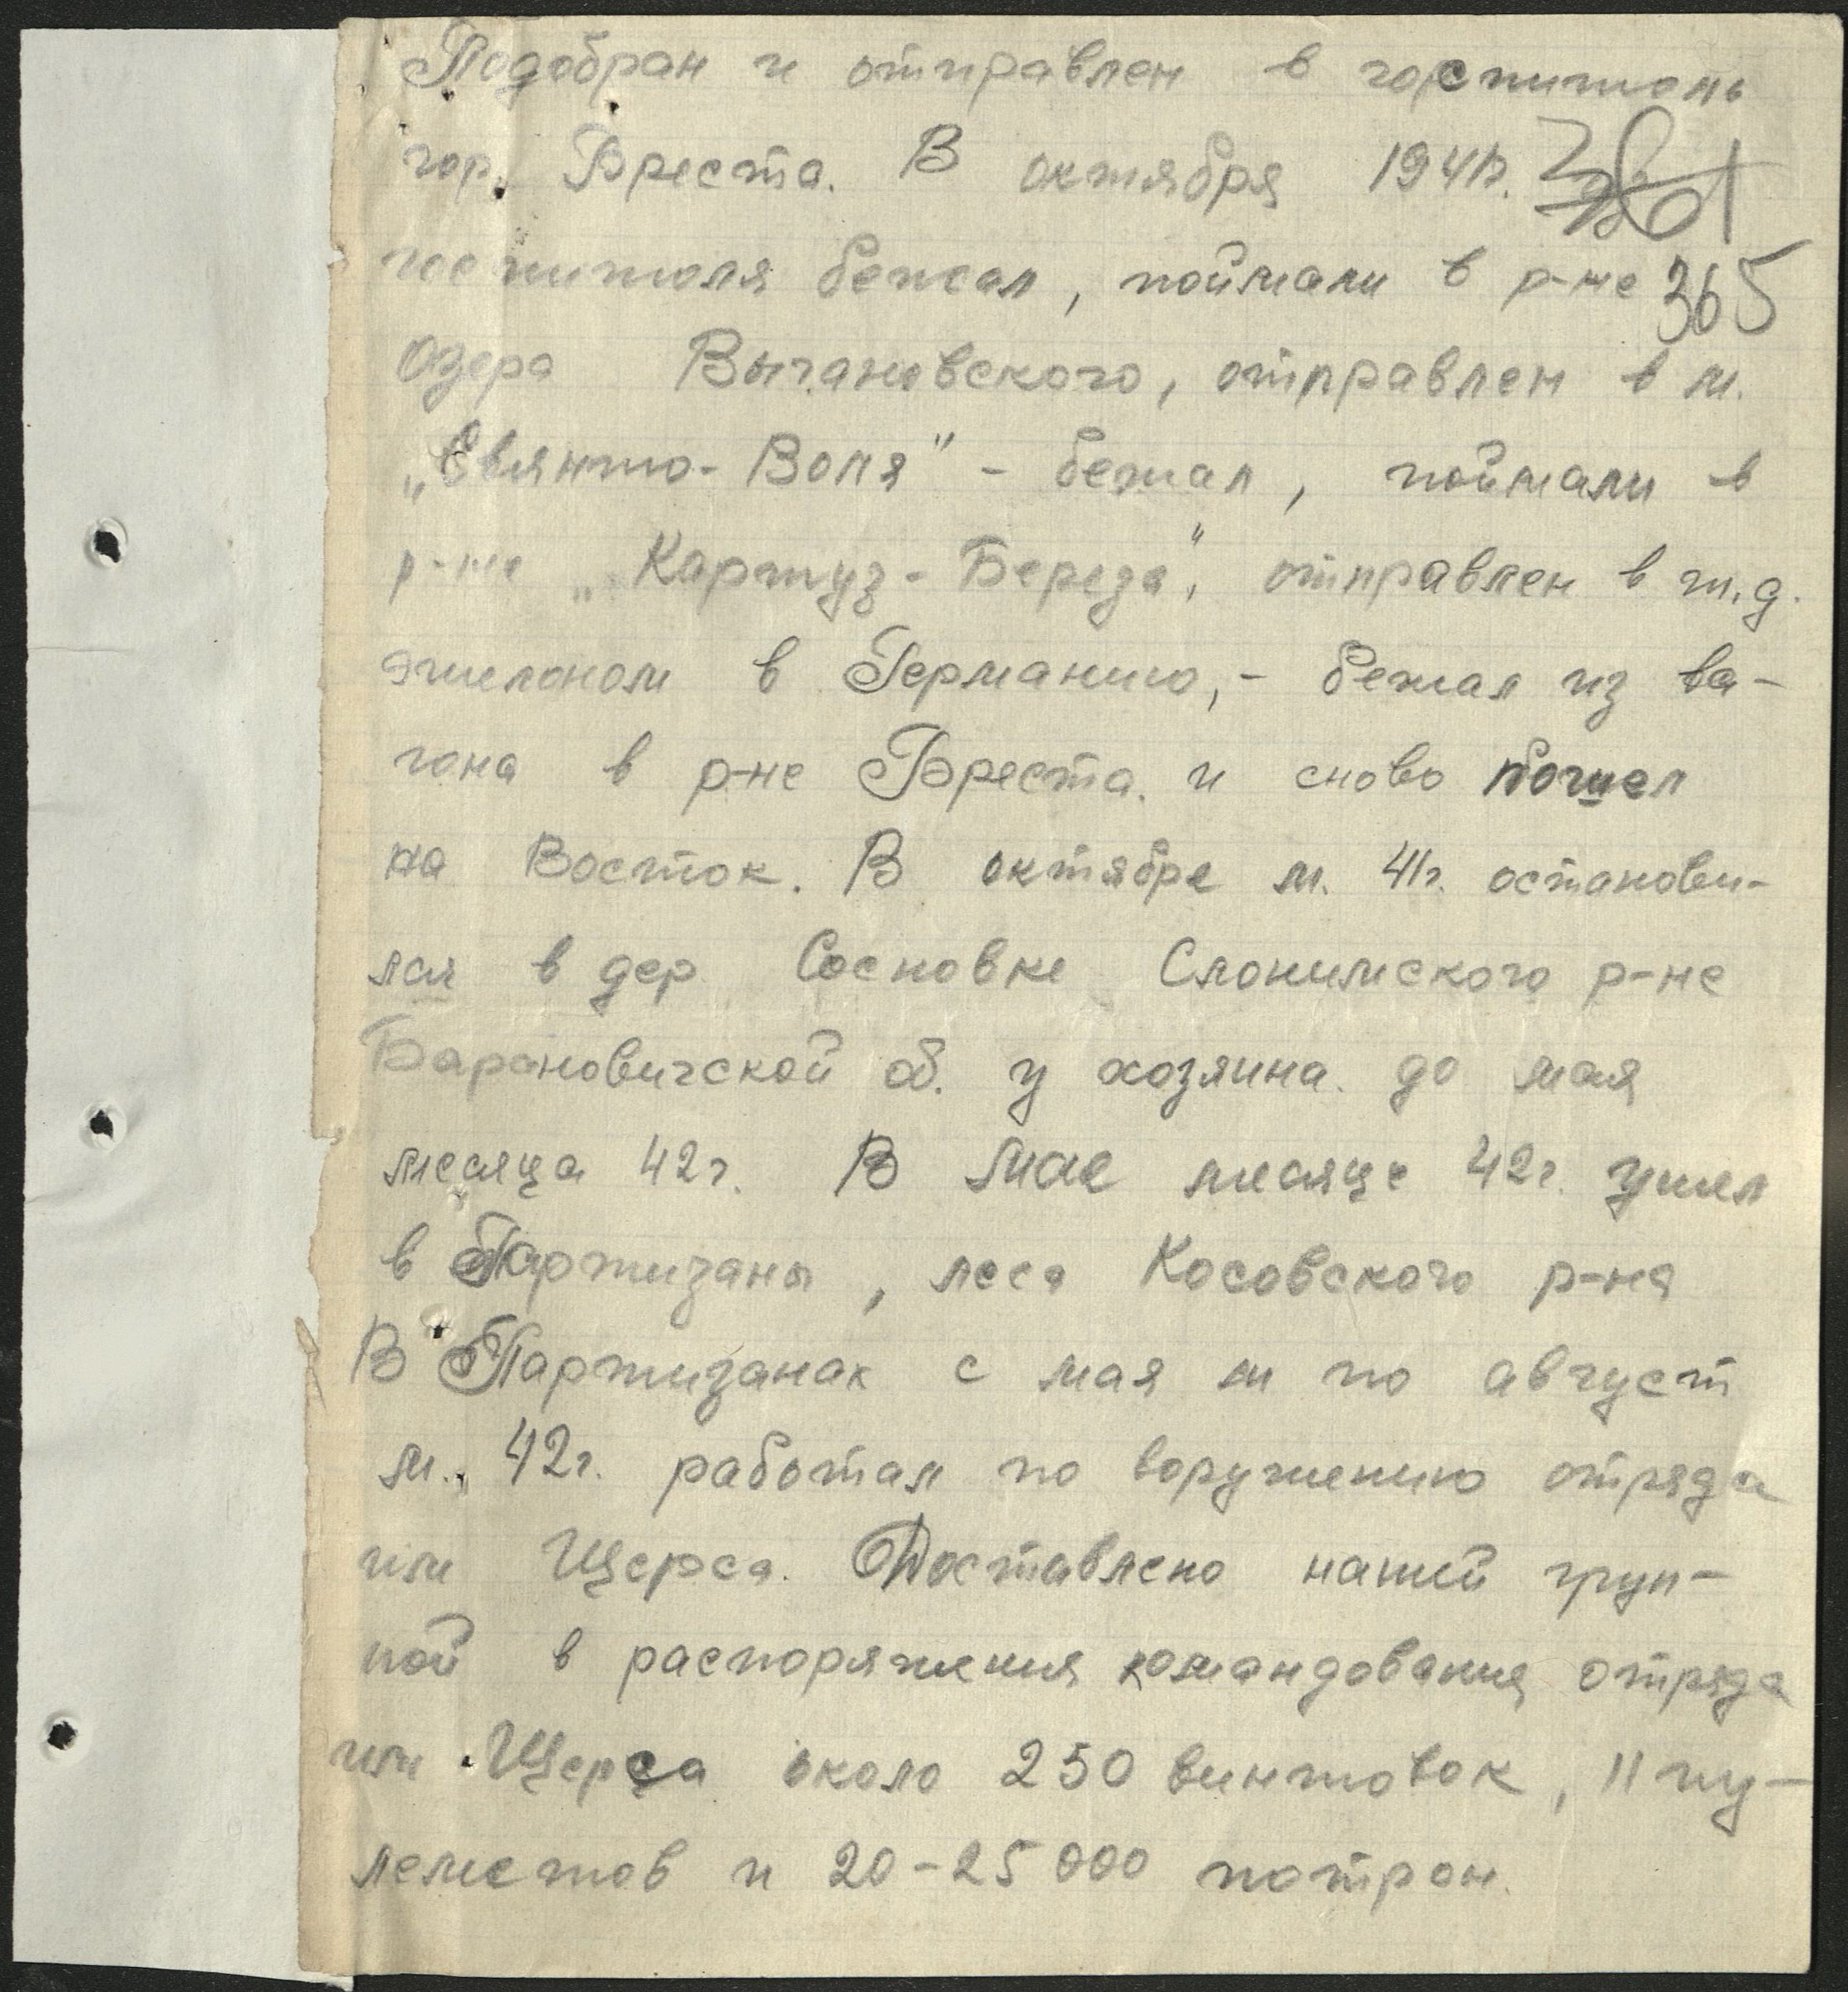 Подобран и отправлен в госпиталь
гор. Бреста. В октября 1941г.
госпиталя бежал, поймали в р-не
365
озера Выгановского, отправлен в м.
„Свянто-Воля" - бежал, поймали в
р-не „Картуз-Береза", отправлен в ж.д.
эшелоном в Германию, - бежал из ва-
гона в р-не Бреста и снова пошел
на Восток. В октябре м. 41г. останови-
лся в дер Сосновке Слонимского р-не
Барановичской об. у хозяина до мая
месяца 42г. В мае месяце 42г. ушел
в Партизаны, леса Косовского р-на
В Партизанах с мая м по август
м. 42г. работал по воружению отряда
им Щерса. Доставлено нашей груп-
пой в распоряжения командования отряда
им Щерса около 250 винтовок, 11 пу-
леметов и 20-25000 потрон.